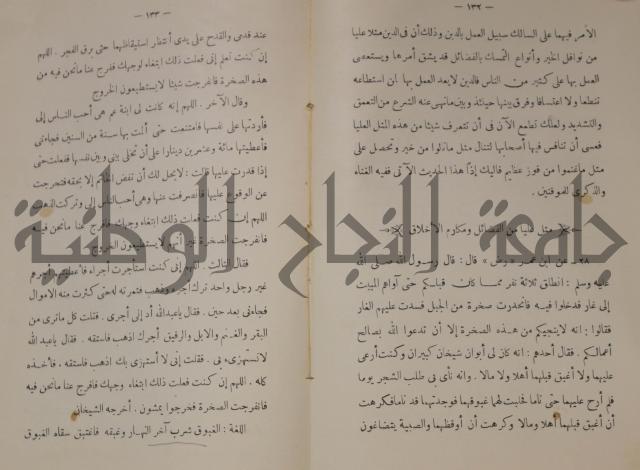 — ١٣٢ —
الأمر فيهما على السالك سبيل العمل بالدين وذلك أن فى الدين مثلا عليا
من نوافل الخير وأنواع التمسك بالفضائل قد يشق أمرها ويستعصى
العمل بها على كثير من الناس فالدين لا يعد العمل بها لمن استطاعه
تنطعا ولا اعتسافا وفرق بينها حينئذ وبين مانهى عنه الشرع من التعمق
والتشديد ولعلك تطامع الآن فى أن تتعرف شيئا من هذه المثل العليا
فعسى أن تنافس فيها أصحابها لتنال مثل مانالوا من خير وتحصل على
مثل ماغنموا من فوز عظيم فاليك إذاً هذا الحديث الآتى ففيه الغناء
والذكرى للموقنين .
مثل عليا من الفضائل ومكارم الأخلاق
٢٨ — عن ابن عمر «رض» قال : قال رسول الله صلى الله
عليه وسلم : انطلق ثلاثة نفر ممن كان قبلكم حتى آواهم المبيت
إلى غار فدخلوا فيه فانحدرت صخرة من الجبل فسدت عليهم الغار
فقالوا : انه لاينجيكم من هذه الصخرة إلا أن تدعوا الله بصالح
أعمالكم . فقال أحدهم : انه كان لى أبوان شيخان كبيران وكنت أرعى
عليهما ولا أغبق قبلهما أهلا ولا مالا . وانه نأى بى طلب الشجر يوما
فلم أرح عليهما حتى ناما فحلبت لهما غبوقهما فوجدتهما قد ناما فكرهت
أن أغبق قبلهما أهلا ومالا وكرهت أن أوقظهما والصبية يتضاغون
— ١٣٣ —
عند قدمى والقدح على يدى أنتظر استيقاظهما حتى برق الفجر . اللهم
إن كنت تعلم إنى فعلت ذلك ابتغاء لوجهك ففرج عنا مانحن فيه من
هذه الصخرة فانفرجت شيئا لايستطيعون الخروج
وقال الآخر . اللهم إنه كانت لى ابنة عم هى أحب الناس إلى
فأردتها على نفسها فامتنعت حتى ألمت بها سنة من السنين فجاءتنى
فأعطيتها مائة وعشرين دينارا على أن تخلى بينى وبين نفسها ففعلت حتى
إذا قدرت عليها قالت : لايحل لك أن تفض الخاتم إلا بحقه فتحرجت
عن الوقوع عليها فانصرفت عنها وهى أحب الناس إلى وتركت الذهب
اللهم إن كنت فعلت ذلك ابتغاء وجهك فافرج عنا مانحن فيه
فانفرجت الصخرة غير أنهم لايستطيعون الخروج
فقال الثالث . اللهم إنى كنت استأجرت أجراء فأعطيتهم أجرهم
غير رجل واحد ترك أجره وذهب فثمرته له حتى كثرت منه الأموال
فجاءنى بعد حين . فقال ياعبد الله أد إلى أجرى . فقلت كل ماترى من
البقر والغنم والابل والرقيق أجرك اذهب فاستقه . فقال ياعبد الله
لا تستهزىء بى . فقلت إنى لا أستهزى بك اذهب فاستقه . فأخذه
كله . اللهم إن كنت فعلت ذلك ابتغاء وجهك فافرج عنا مانحن فيه
فانفرجت الصخرة فخرجوا يمشون . أخرجه الشيخان
اللغة : الغبوق شرب آخر النهار وغبقه فاغتبق سقاه الغبوق
جامعة النجاح الوطنية